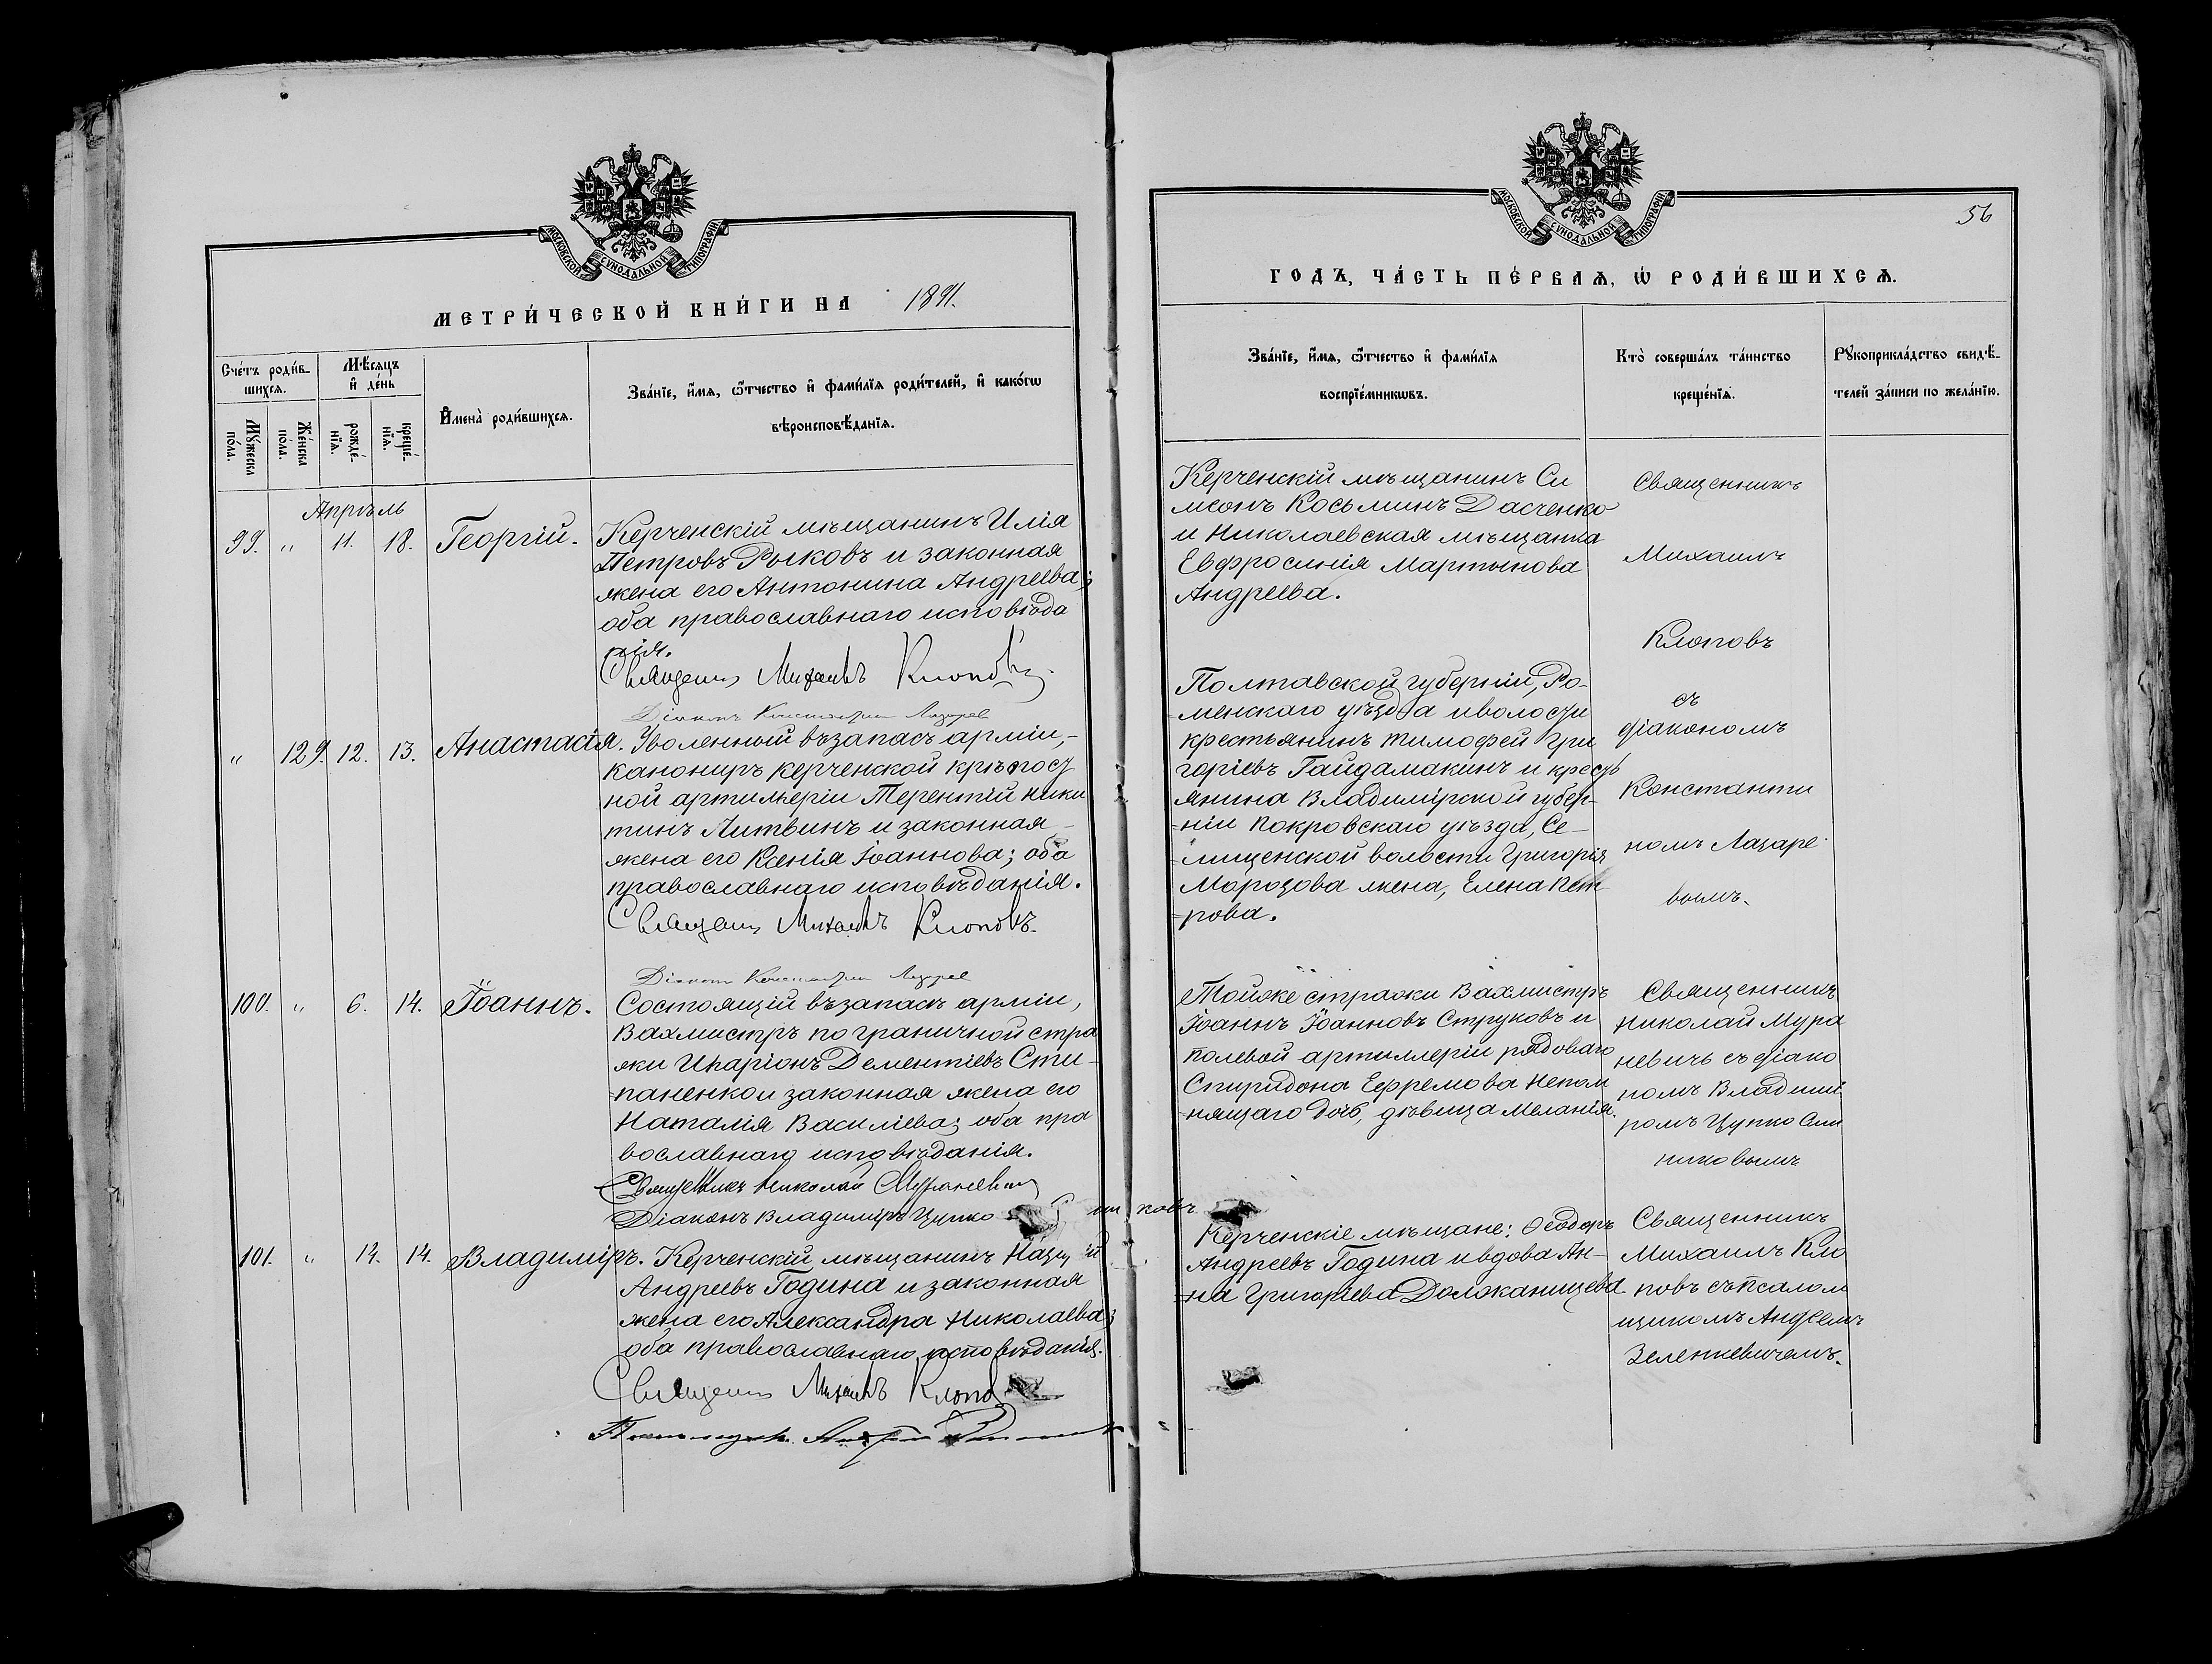 МОСКОВСКОЙ СѴНОДАЛЬНОЙ ТИПОГРАФІИ
МЕТРИ́ЧЕСКОЙ КНИ́ГИ НА 1891.
Сче́тъ роди́в-
шихсѧ.
Мѣ́сѧцъ
и҆ де́нь
Мꙋ́жеска
по́ла.
Же́нска
по́ла.
рожде́-
нїѧ.
креще́-
нїѧ.
И҆мена̀ роди́вшихсѧ.
Зва́нїе, и҆́мѧ, ѻ҆́тчество и҆ фами́лїѧ роди́телей, и҆ како́гѡ
вѣроисповѣ́данїѧ.
Апрѣль
99. " 11. 18. Георгій.
Керченскій мѣщанинъ Илія
Петровъ Рыковъ и законная
жена его Антонина Андреева;
оба православнаго исповѣда
нія.
Священн Михаилъ Клоповъ
Діаконъ Константин Лазарев
" 129. 12. 13. Анастасія.
Уволенный въ запасъ арміи,-
канониръ керченской крѣпост
ной артиллеріи Терентій Ники
тинъ Литвинъ и законная
жена его Ксенія Іоаннова; оба
православнаго исповѣданія.
Священн Михаилъ Клоповъ.
Діаконъ Константин Лазарев
100. " 6. 14. Іоаннъ.
Состоящій въ запасѣ арміи,
Вахмистръ пограничной стра
жи Иларіонъ Дементіевъ Сти-
=паненко и законная жена его
Наталія Василіева; оба пра
вославнаго исповѣданія.
Священникъ Николай Мураневич
Діаконъ Владиміръ Цупко
101. " 14. 14. Владиміръ.
Керченскій мѣщанинъ
Андреевъ Година и законная
жена его Александра Николаева;
оба православнаго исповѣданія.
Священн Михаилъ Клопов
МОСКОВСКОЙ СѴНОДАЛЬНОЙ ТИПОГРАФІИ
56
ГОДЪ, ЧА́СТЬ ПЕ́РВАѦ, Ѡ҆ РОДИ́ВШИХСѦ.
Зва́нїе, и҆́мѧ, ѻ҆́тчество и҆ фами́лїѧ
воспрїе́мникѡвъ.
Кто̀ соверша́лъ та́инство
креще́нїѧ.
Рꙋкоприкла́дство свидѣ́-
телей за́писи по жела́нїю.
Керченскій мѣщанинъ Си
меонъ Косьминъ Дасченко
и Николаевская мѣщанка
Евфросинія Мартынова
Андреева.
Полтавской губерніи, Ро-
=менскаго уѣзда и волости
крестьянинъ Тимофей Гри
горіевъ Гайдамакинъ и кресть
янина Владимірской губер-
=ніи Покровскаго уѣзда, Се-
=лищенской волости Григорія
Морозова жена, Елена Пет
=рова.
Священникъ
Михаилъ
Клоповъ
съ
діакономъ
Константи
номъ Лазаре
вымъ.
Той же стражи Вахмистръ
Іоаннъ Іоанновъ Струковъ и
полевой артиллеріи рядоваго
Спиридона Ефремова Непом
=нящаго дочь, дѣвица Меланія.
Священникъ
Николай Мура
невичъ съ діако
номъ Владимі
ромъ Цупко Сит
никовымъ
Керченскіе мѣщане: Ѳеодоръ
Андреевъ Година и вдова Ан-
=на Григоріева Должанищева
Священникъ
Михаилъ Кло
повъ съ псалом
щикомъ Андреемъ
Зеленкевичемъ.